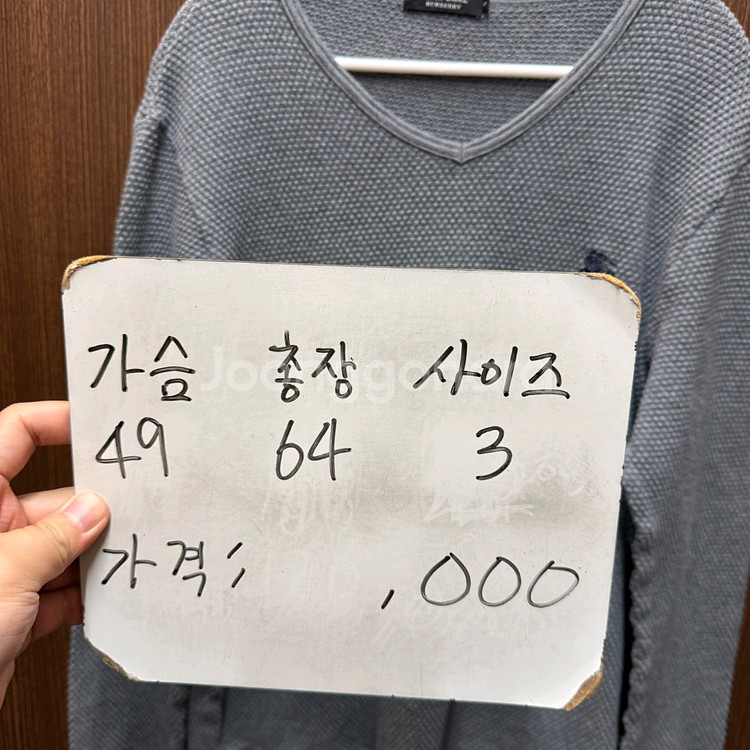 가슴 총장 사이즈
49 64 3
가격: ,000